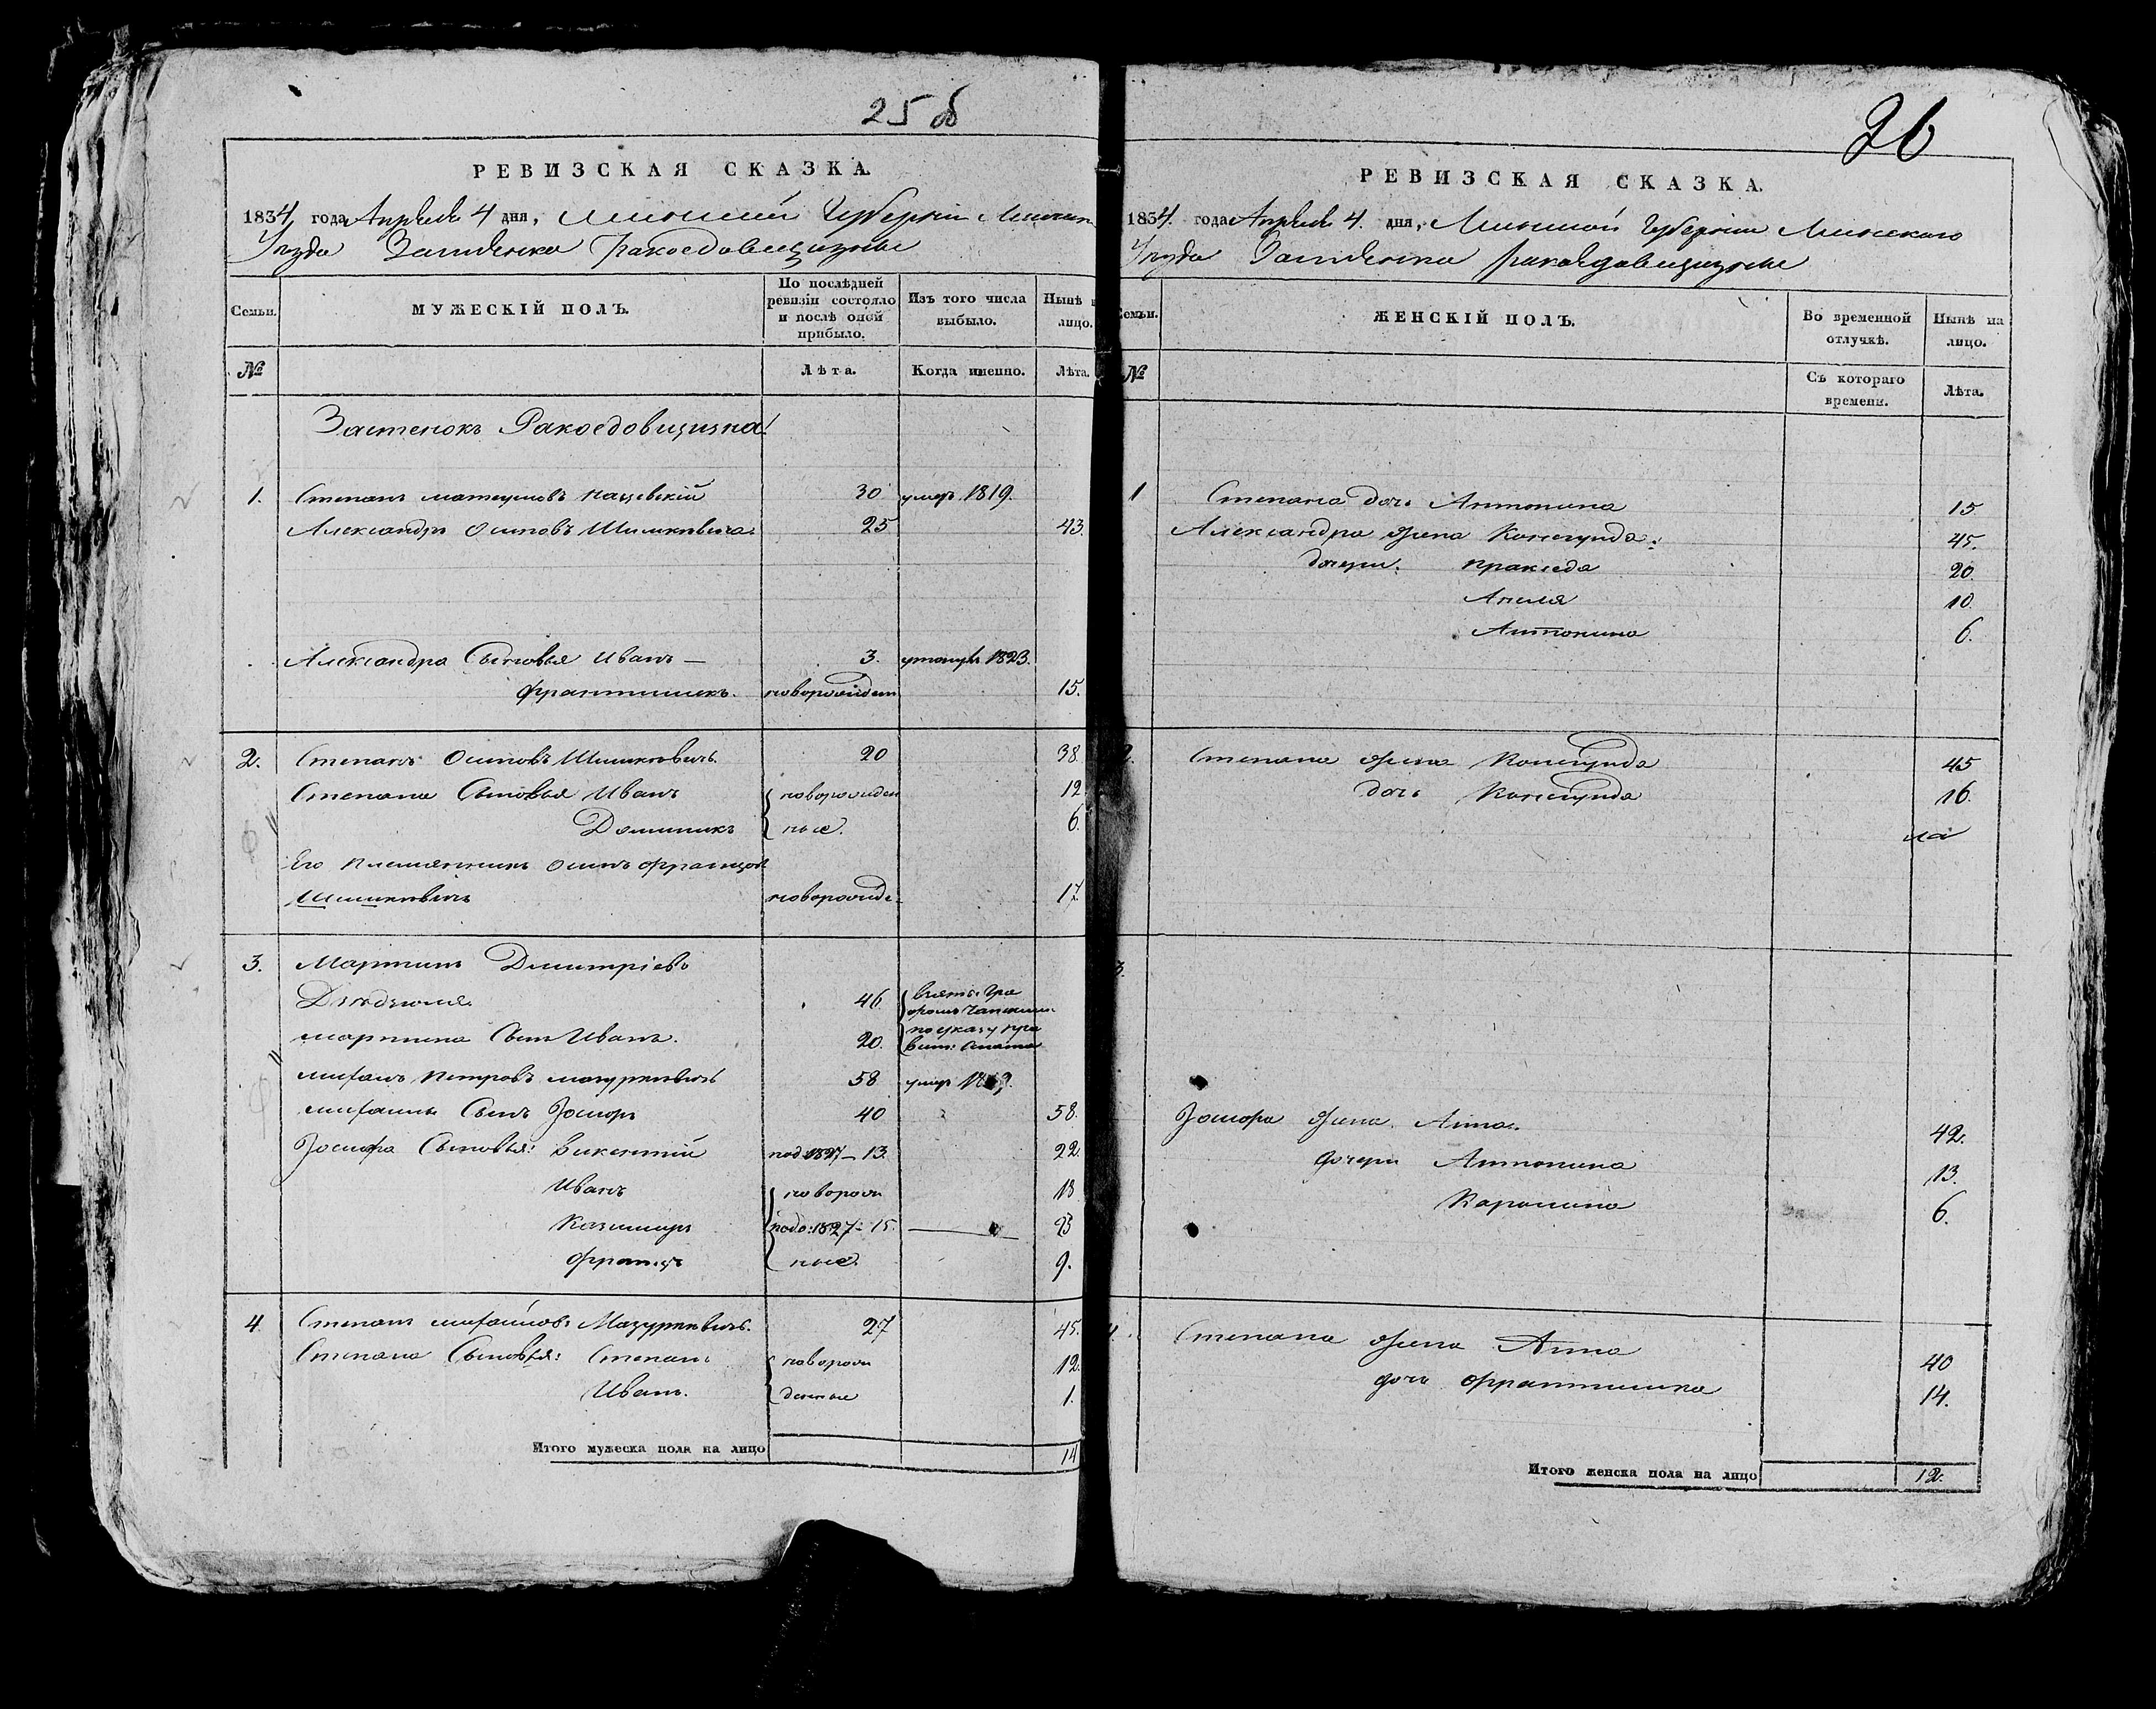 25 б
РЕВИЗСКАЯ СКАЗКА.
1834 года Апрѣля 4 дня, Минской Губерніи Минск
Уѣзда Застѣнка Ракоедовщизны
Семьи. МУЖЕСКІЙ ПОЛЪ. По послѣдней ревизіи состояло и послѣ оной прибыло. Изъ того числа выбыло. Нынѣ лицо.
№ Лѣта. Когда именно. Лѣта.
Застенокъ Ракоедовщизна
1. Степанъ Матеушовъ 30 умеръ 1819.
Александръ Осиповъ Шишковичъ 25 43.
Александра Сыновья Иванъ — 3. 1823.
Франтишекъ. новорожден 15.
2. Степанъ Осиповъ Шишковичъ 20 38.
Степана Сыновья Иванъ новорожден 12
Доминикъ ные. 6.
Его племянникъ Осипъ Францов
Шишковичъ новорожде 17.
3. Мартинъ Дмитріевъ
46 взяты Гра
фомъ Чапским
Мартина Сынъ Иванъ. 20. по указу пра
вит: Сената
Михаилъ Петровъ Мазуркевичъ 58 умеръ
Михаила Сынъ Іосифъ 40 58.
Іосифа Сыновья: Викентій под: 1827 — 13. 22.
Иванъ новорож 18
Казимиръ подо: 1827 — 15. 23
Францъ ные. 9.
4 Степанъ Михайловъ Мазуркевичъ. 27 45.
Степана Сыновья: Степанъ новорож 12.
Иванъ. денные 1.
Итого мужеска пола на лицо 14
26
РЕВИЗСКАЯ СКАЗКА.
1834. года Апрѣля 4. дня, Минской Губерніи Минскаго
Уѣзда Застѣнка Ракоедовщизны
Семьи. ЖЕНСКІЙ ПОЛЪ. Во временной отлучкѣ. Нынѣ на лицо.
№ Съ котораго времени. Лѣта.
1 Степана дочь Антонина 15.
Александра жена Конегунда: 45.
дочери: Пракседа 20.
Анеля 10.
Антонина 6.
2. Степана жена Конегунда 45
дочь Конегунда 16.
3.
Іосифа жена Анна. 42.
дочери Антонина 13.
Каролина 6.
4. Степана жена Анна 40
дочь Франтишка 14.
Итого женска пола на лицо 12.